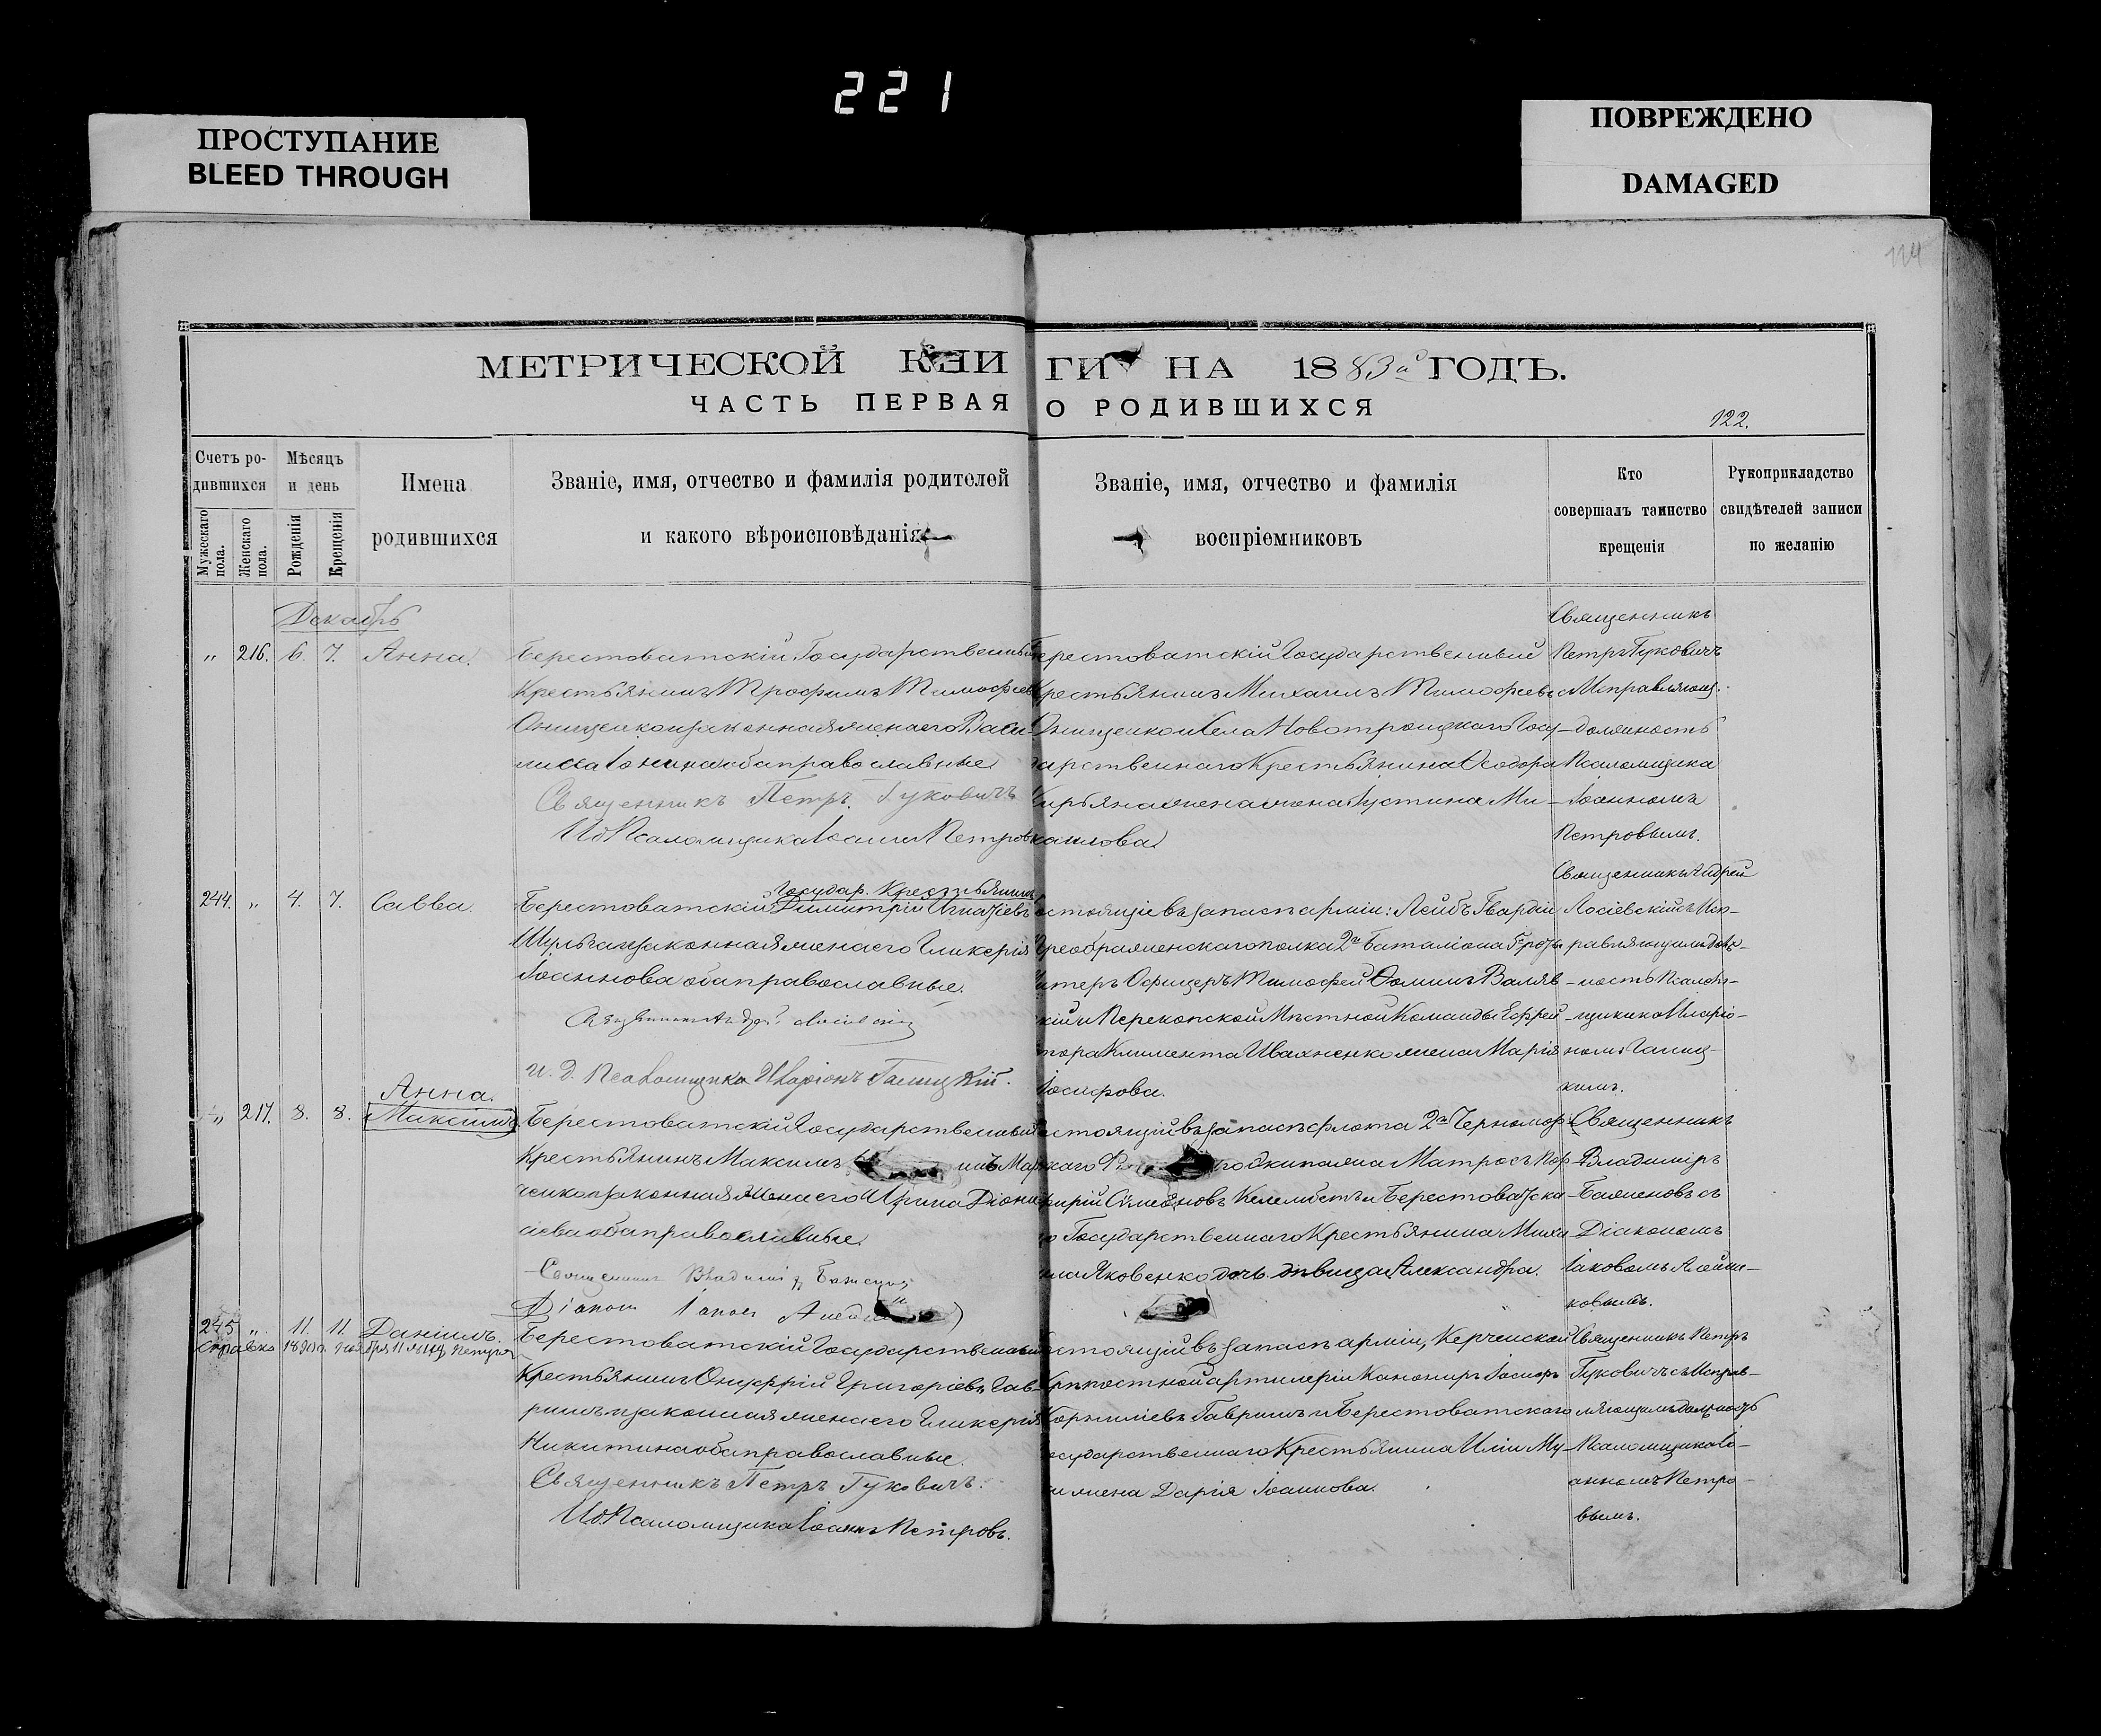 221
ПРОСТУПАНИЕ
BLEED THROUGH
ПОВРЕЖДЕНО
DAMAGED
114
МЕТРИЧЕСКОЙ КНИГИ НА 1883й ГОДЪ.
ЧАСТЬ ПЕРВАЯ О РОДИВШИХСЯ
122.
Счетъ родившихся
Мужескаго пола.
Женскаго пола.
Мѣсяцъ и день
Рожденія
Крещенія
Имена родившихся
Званіе, имя, отчество и фамилія родителей
и какого вѣроисповѣданія
Званіе, имя, отчество и фамилія
воспріемниковъ
Кто
совершалъ таинство
крещенія
Рукоприкладство
свидѣтелей записи
по желанію
Декабрь
„ 216. 6. 7. Анна.
Берестоватскій Государственный
Крестьянинъ Трофимъ Тимофеевъ
Онищенко и законная жена его Васи-
лисса Іонина оба православные
Священникъ Петръ Гуковичъ
Ид Псаломщика Іоаннъ Петровъ
Берестоватскій Государственный
Крестьянинъ Михаилъ Тимофеевъ
Онищенко и Села Новотроицкаго Госу-
дарственнаго Крестьянина Ѳеодора
Кирьяна жена Іустина Ми-
хаилова
Священникъ
Петръ Гуковичъ
с Исправляющ.
должность
Псаломщика
Іоанномъ
Петровымъ.
244. „ 4. 7. Савва.
Государ. Крестьянинъ
Берестоватскій Димитрій Игнатіевъ
Шульга и законная жена его Гликерія
Іоаннова оба православные.
и. д. Псаломщика Иларіонъ Галицкій.
состоящіе въ запасѣ арміи: Лейбъ Гвардіи
Преображенскаго полка 2го Баталіона роты
Унтеръ Офицеръ Тимофей Ѳоминъ Валяв-
скій и Перекопской Мѣстной Команды Ефрей-
тора Климента Ивахненко жена Марія
Іосифова.
Священникъ Андрей
Лосіевскій съ Исп-
равляющимъ долж-
ность Псалом-
щика Иларіо-
номъ Галиц-
кимъ.
„ 217. 8. 8. Анна.
Максимъ
Берестоватскій Государственный
Крестьянинъ Максимъ
и законная жена его Ирина Діони-
сіева оба православные.
состоящій въ запасѣ флота 2го Черномор-
скаго экипажа Матросъ Пор-
фирій Симеоновъ Келембетъ и Берестоватска-
го Государственнаго Крестьянина Миха-
ила Яковенко дочь дѣвица Александра.
Священникъ
Владиміръ
Баженовъ съ
Діакономъ
Іаковомъ
ковымъ.
245 „ 11. 11. Даніилъ.
Справка
Берестоватскій Государственный
Крестьянинъ Онуфрій Григоріевъ Гав-
ришъ и законная жена его Гликерія
Никитина оба православные.
Священникъ Петръ Гуковичъ.
Ид. Псаломщика Іоаннъ Петровъ.
состоящій въ запасѣ арміи, Керченской
Крѣпостной артилеріи Канониръ Іосифъ
Корниліевъ Гавришъ и Берестоватскаго
Государственнаго Крестьянина Иліи Му-
жена Дарія Іоаннова.
Священникъ Петръ
Гуковичъ съ Исправ-
ляющимъ должность
Псаломщика Іо-
анномъ Петро-
вымъ.